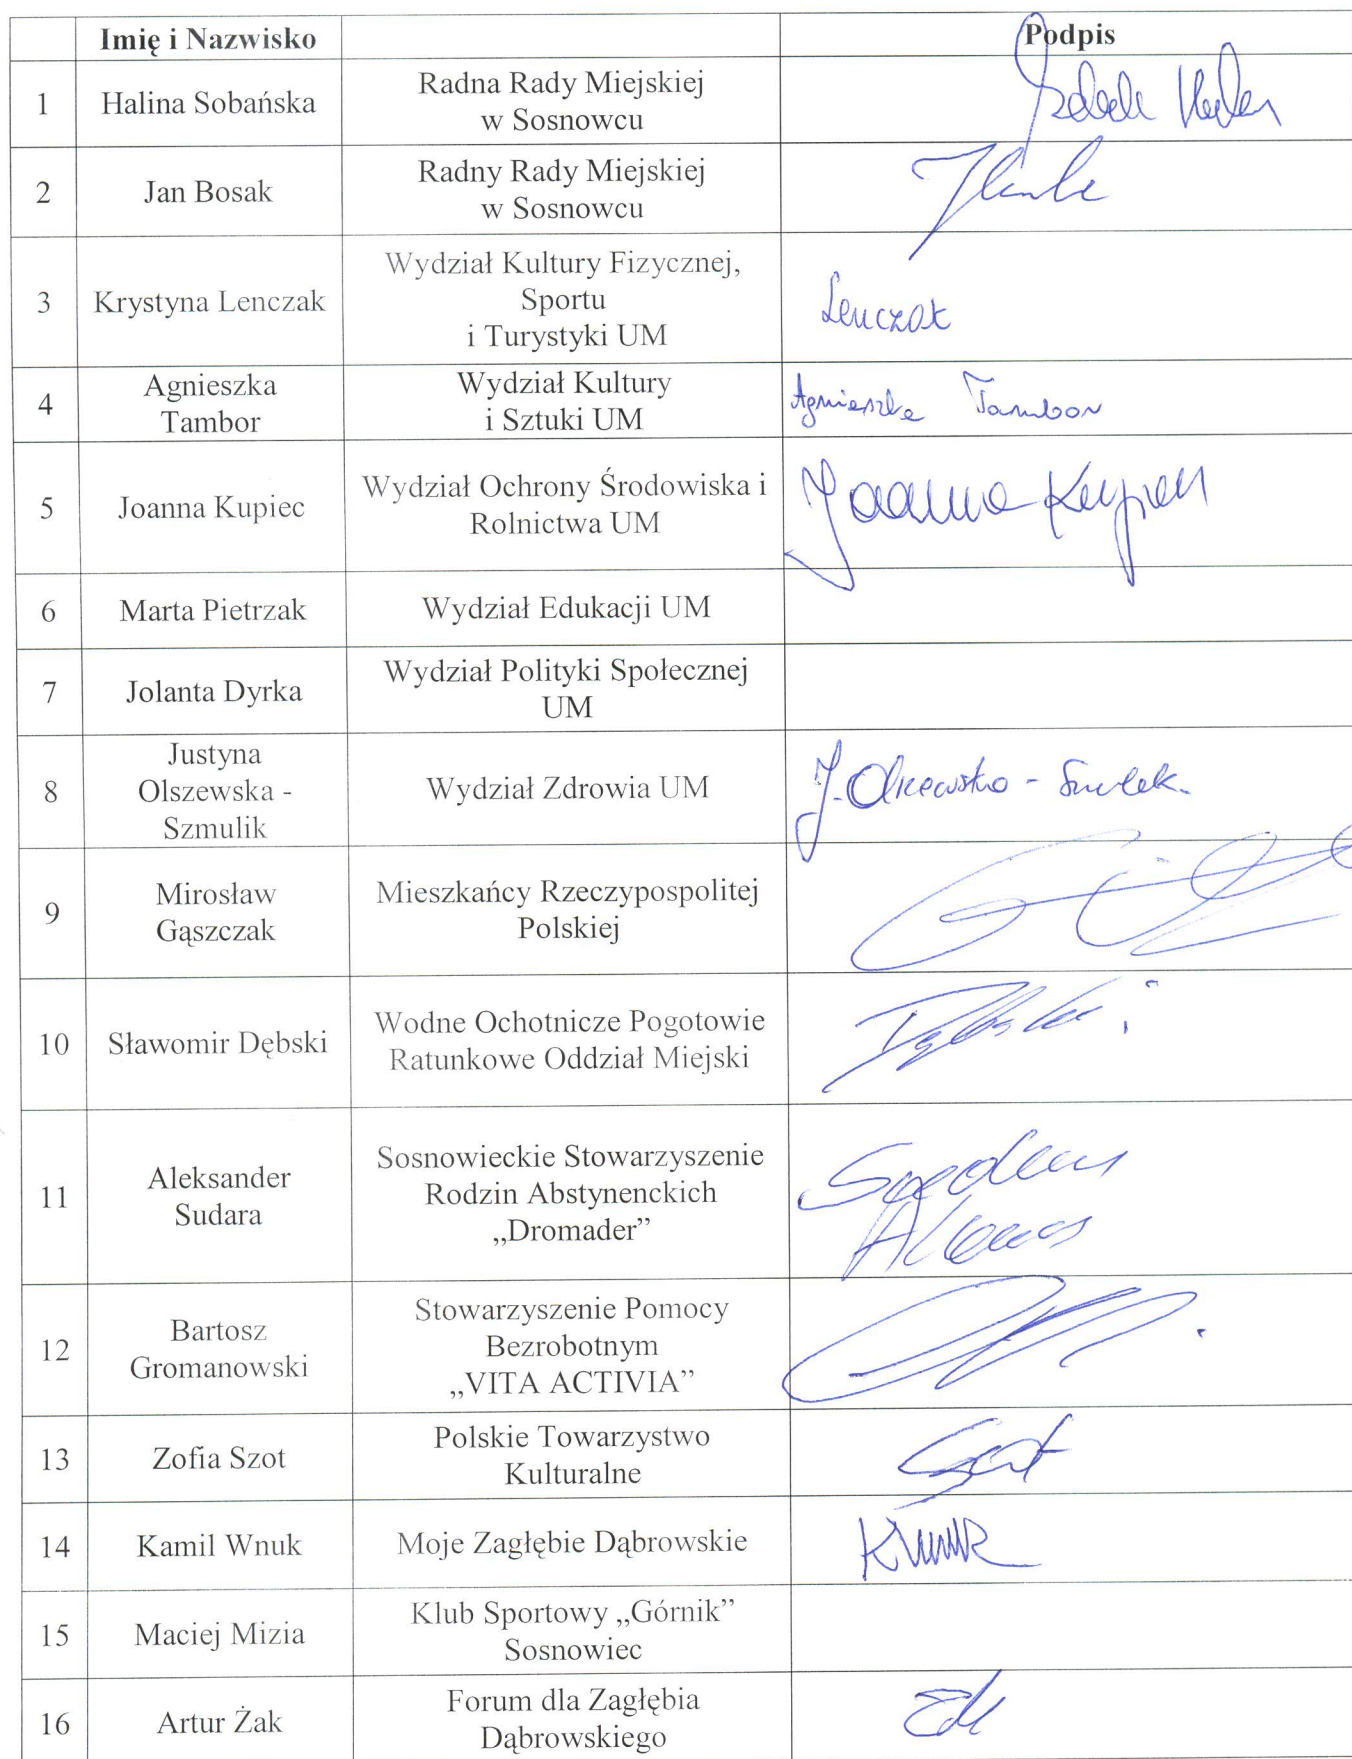 Imię i Nazwisko
Podpis
1
Halina Sobańska
Radna Rady Miejskiej
w Sosnowcu
2
Jan Bosak
Radny Rady Miejskiej
w Sosnowcu
3
Krystyna Lenczak
Wydział Kultury Fizycznej,
Sportu
i Turystyki UM
Lenczak
4
Agnieszka
Tambor
Wydział Kultury
i Sztuki UM
Agnieszka Tambor
5
Joanna Kupiec
Wydział Ochrony Środowiska i
Rolnictwa UM
Joanna Kupiec
6
Marta Pietrzak
Wydział Edukacji UM
7
Jolanta Dyrka
Wydział Polityki Społecznej
UM
8
Justyna
Olszewska -
Szmulik
Wydział Zdrowia UM
9
Mirosław
Gąszczak
Mieszkańcy Rzeczypospolitej
Polskiej
10
Sławomir Dębski
Wodne Ochotnicze Pogotowie
Ratunkowe Oddział Miejski
11
Aleksander
Sudara
Sosnowieckie Stowarzyszenie
Rodzin Abstynenckich
„Dromader”
12
Bartosz
Gromanowski
Stowarzyszenie Pomocy
Bezrobotnym
„VITA ACTIVIA”
13
Zofia Szot
Polskie Towarzystwo
Kulturalne
Szot
14
Kamil Wnuk
Moje Zagłębie Dąbrowskie
KWnuk
15
Maciej Mizia
Klub Sportowy „Górnik”
Sosnowiec
16
Artur Żak
Forum dla Zagłębia
Dąbrowskiego